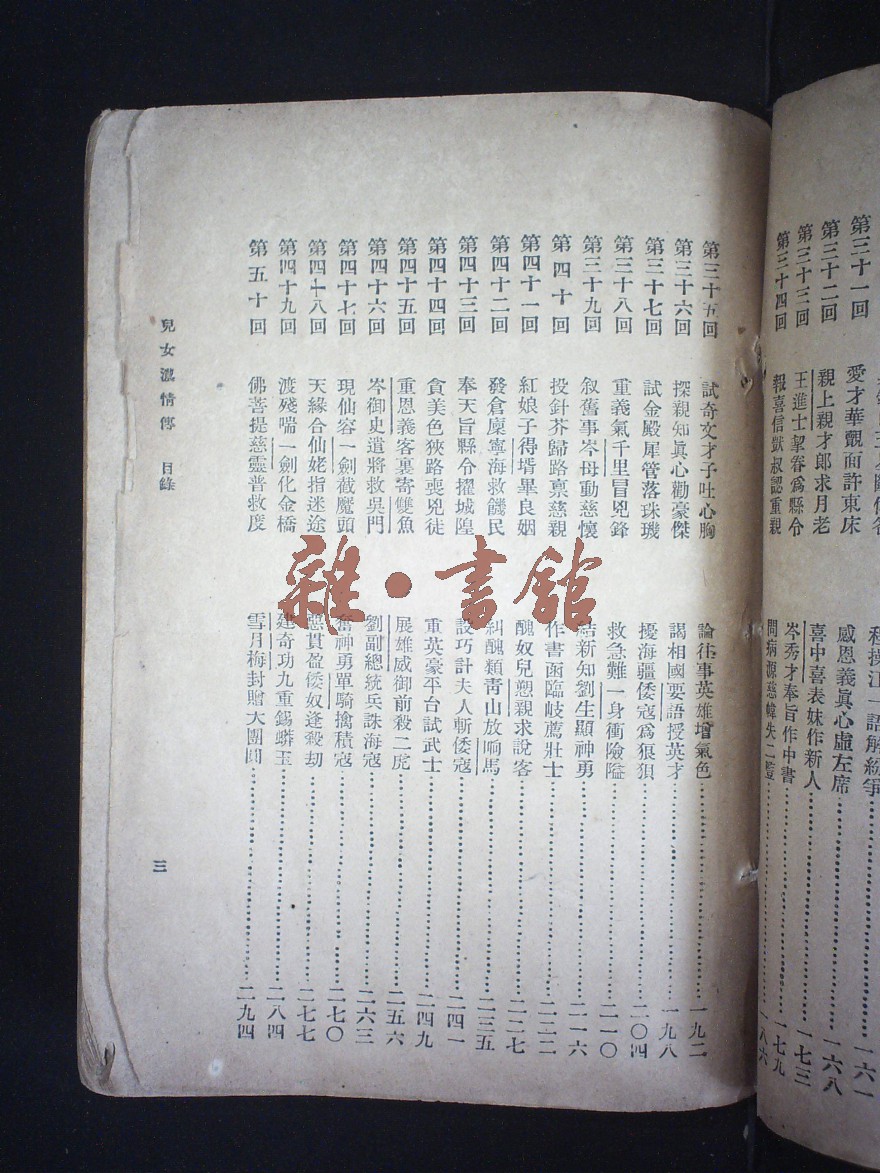 第三十一回
愛才華觀面許東床
一六一
第三十二回 親上親才郎求月老 感恩義眞心虛左席 一六八
第三十三回 王進士挈眷爲縣令 喜中喜表妹作新人 一七三
第三十四回 報喜信獃叔認重親 岑秀才奉旨作中書 一七九
問病源慈幃失二豎 一八六
第三十五回 試奇文才子吐心胸 論往事英雄增氣色 一九二
第三十六回 探親知眞心勸豪傑 謁相國要語授英才 一九八
第三十七回 試金殿犀管落珠璣 擾海疆倭寇爲狼狽 二〇四
第三十八回 重義氣千里冒兇鋒 救急難一身衝險隘 二一〇
第三十九回 叙舊事岑母動慈懷 結新知劉生顯神勇 二一六
第四十回 投針芥歸路禀慈親 作書函臨岐薦壯士 二二二
第四十一回 紅娘子得壻畢良姻 醜奴兒戀親求說客 二二七
第四十二回 發倉廩寧海救饑民 糾醜類靑山放响馬 二三五
第四十三回 奉天旨縣令擢城隍 設巧計夫人斬倭寇 二四一
第四十四回 貪美色狹路喪兇徒 重英豪平台試武士 二四九
第四十五回 重恩義客裏寄雙魚 展雄威御前殺二虎 二五六
第四十六回 岑御史遣將救吳門 劉副總統兵誅海寇 二六三
第四十七回 現仙容一劍截魔頭 奮神勇單騎擒積寇 二七〇
第四十八回 天緣合仙姥指迷途 惡貫盈倭奴逢殺劫 二七七
第四十九回 渡殘喘一劍化金橋 建奇功九重錫蟒玉 二八四
第五十回 佛菩提慈靈普救度 雪月梅封贈大團圓 二九四
兒女濃情傳 目錄
三
雜·書館